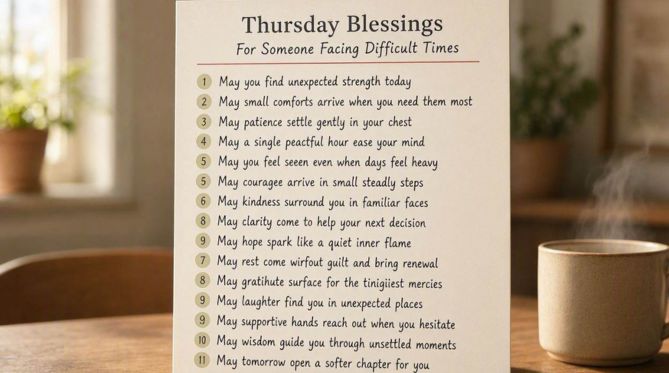 Thursday Blessings
For Someone Facing Difficult Times
1 May you find unexpected strength today
2 May small comforts arrive when you need them most
3 May patience settle gently in your chest
4 May a single peactful hour ease your mind
5 May you feel seeen even when days feel heavy
5 May couragee arrive in small steadly steps
6 May kindness surround you in familiar faces
8 May clarity come to help your next decision
9 May hope spark like a quiet inner flame
7 May rest come wirfout guilt and bring renewal
8 May gratihute surface for the tinigiiest mercies
9 May laughter find you in unexpected places
9 May supportive hands reach out when you hesitate
10 May wisdom guide you through unsettled moments
11 May tomorrow open a softer chapter for you